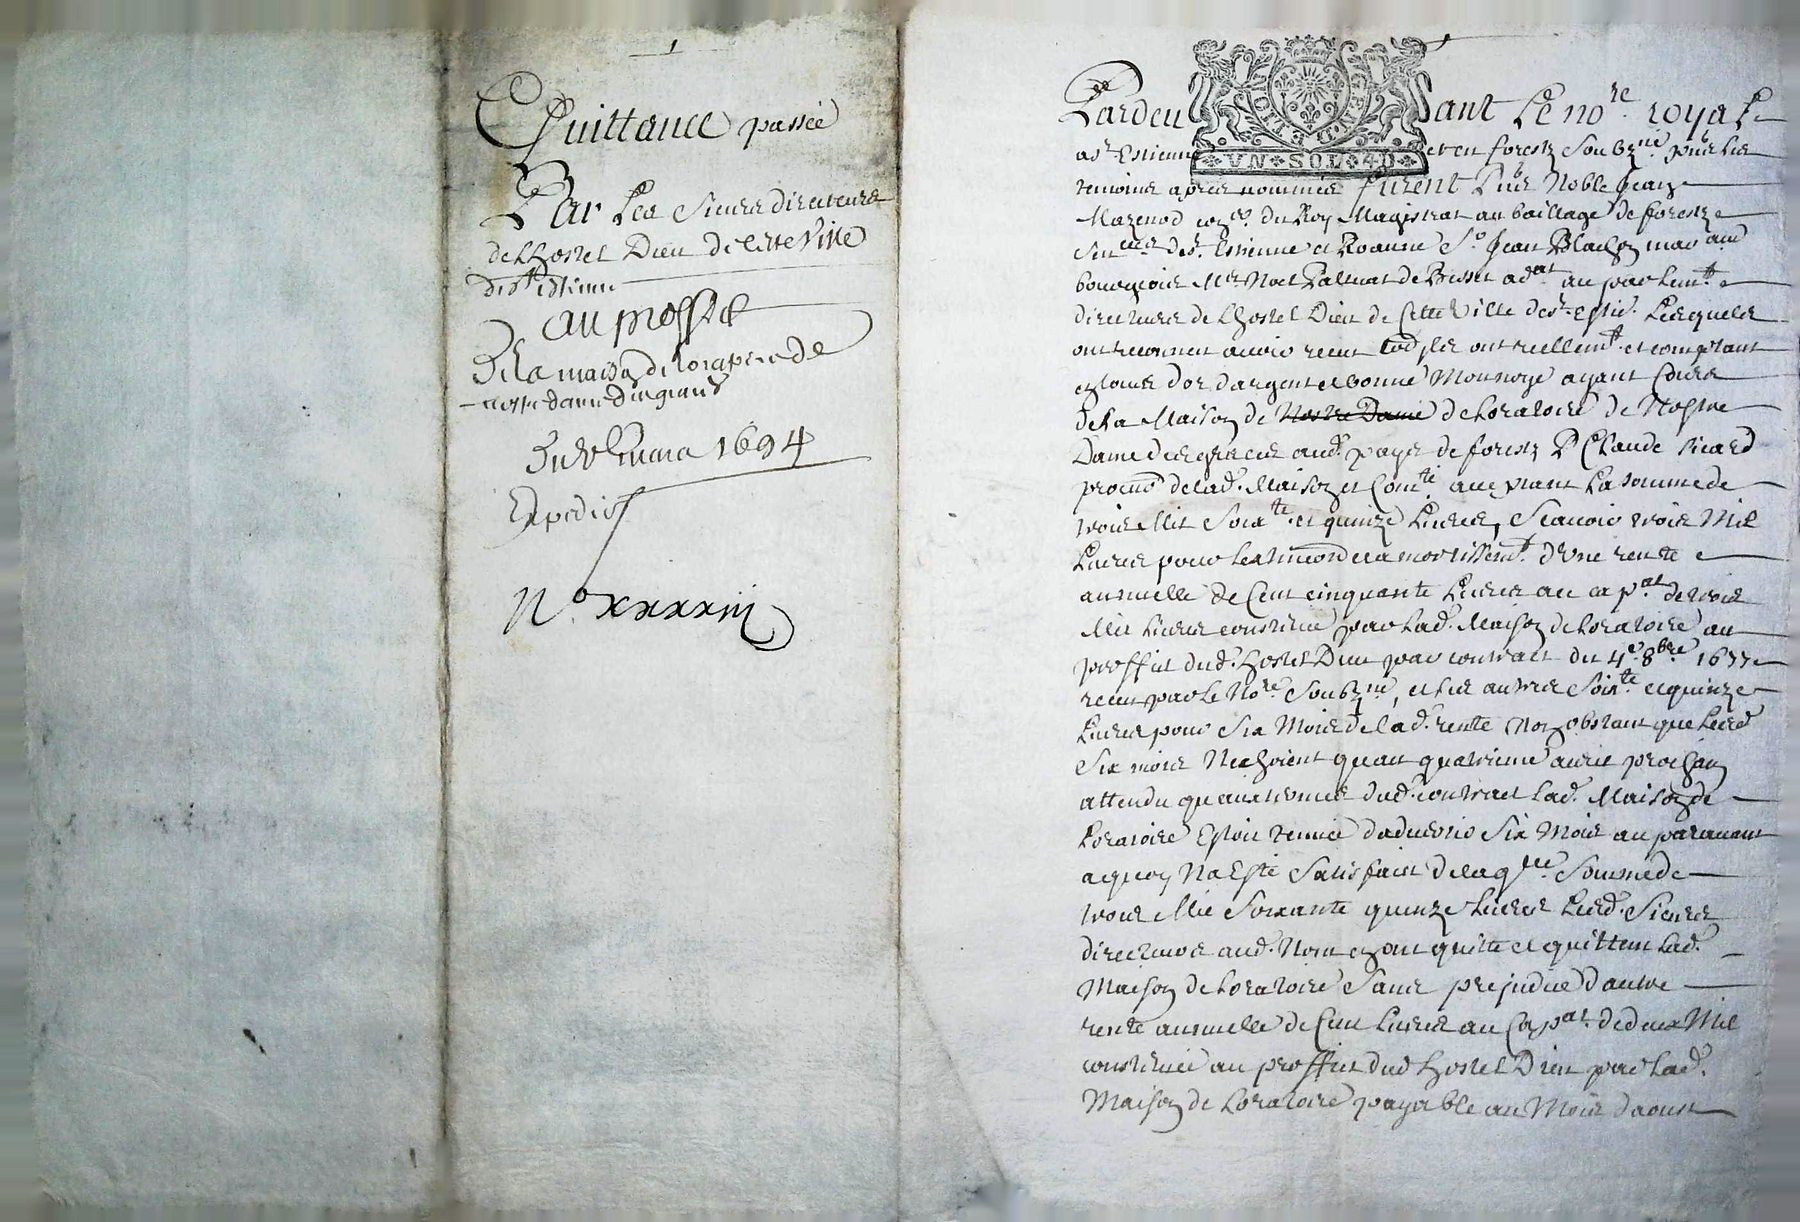 Quittance passée
Par Les Sieurs directeurs
de Lhostel Dieu de cette Ville
de st Estienne
au proffit
De la maison de loratoire de
nostre dame des graces
Du mars 1694
Expedié
N.o xxxxiii
Pardevant Le nore. royal
a st. Estienne en forestz Soubzne. presents Les
temoins apres nommés furent Pnts Noble Jean
Mazenod coner. du Roy Magistrat au baillage de forestz
Senceée de st. Estienne et Roanne Sr. Jean Blachon marchand
bourgeois Mre Noel Palluat de Besset adat. au parlemt.
directeurs de Lhostel Dieu de Cette Ville de st. Estie. Lesquels
ont reconneu avoir receu comme ils ont reellemt. et comptant
en louis d'or d'argent et bonne Monnoye ayant Cours
de La Maison de Nostre Dame de Loratoire de Nostre
Dame des graces aud. pays de forestz P. Claude Sicard
procur de lad. Maison et Comté. acceptant La somme de
trois Mil Soixte. et quinze Livres, Scavoir trois Mil
Livres pour Lextinction et amortissemt. d'Une rente
annuelle de Cent cinquante Livres au capal. de trois
Mil Livres constitué par Lad. Maison de Loratoire au
proffit dud. Hostel Dieu par contract du 4e. 8bre. 1677
receu par Le Nore. Soubzne, et Les autres Soixte. et quinze
Livres pour Six Mois de lad. rente Nonobstant que Lesd.
Six mois N'eschoient qu'au quatrieme avril prochain
attendu qu'aux termes dud. contract Lad. Maison de
Loratoire Estoit tenuë d'advertir Six Mois au paravant
a quoy N'a Esté Satisfait de laqlle. Somme de
trois Mil Soixante quinze Livres Lesd. Sieurs
directeurs aud. Nom en ont quitté et quittent Lad.
Maison de Loratoire Sans prejudice d'autre
rente annuelle de Cent Livres au Capal. de deux Mil
constituée au proffit dud Hostel Dieu par Lad.
Maison de Loratoire payable au Mois daoust
VN·SOL·4D